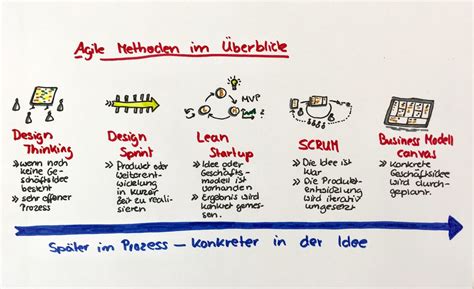 Agile Methoden im Überblick
MVP
Design
Thinking
» wenn noch
keine Ge-
schäftsidee
besteht
» sehr offener
Prozess
Design
Sprint
» Produkt oder
Weiterent-
wickelung
in kurzer
Zeit zu reali-
sieren
Lean
Startup
» Idee oder
Geschäfts-
modell ist
vorhanden
» Ergebnis wird
konkret gemes-
sen.
SCRUM
» Die Idee ist
klar
» Die Produkt-
entwicklung
wird iterativ
umgesetzt
Business Modell
canvas
» konkrete
Geschäftsidee
wird durch-
geplant.
Später im Prozess – konkreter in der Idee